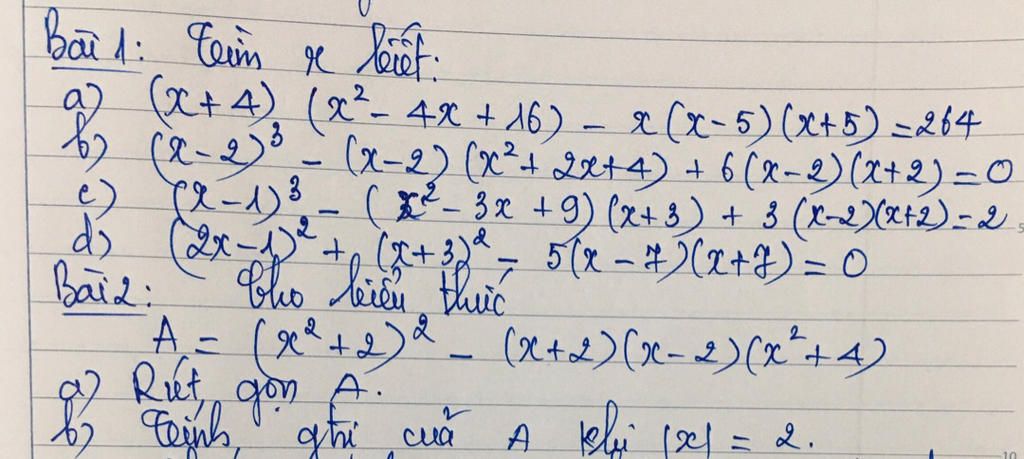 Bài 1: Tìm x biết:
a) (x + 4) (x² - 4x + 16) - x(x-5)(x+5) = 264
b) (x-2)³ - (x-2)(x² + 2x + 4) + 6(x-2)(x+2) = 0
c) (x-1)³ - (x² - 3x + 9)(x+3) + 3(x-2)(x+2) = 2
d) (2x-1)² + (x+3)² - 5(x-7)(x+7) = 0
Bài 2: Cho biểu thức
A = (x² + 2)² - (x+2)(x-2)(x² + 4)
a) Rút gọn A.
b) Tính gtrị của A khi |x| = 2.